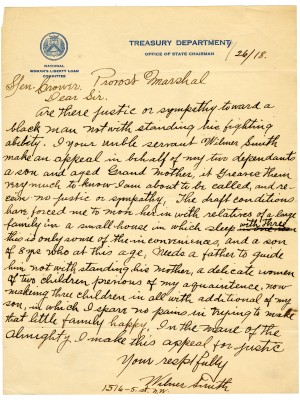 TREASURY DEPARTMENT
OFFICE OF STATE CHAIRMAN
NATIONAL
WOMAN'S LIBERTY LOAN
COMMITTEE
/26/18.
Gen. Crower. Provost Marshal
Dear Sir.
Are there justic or sympathy toward a
black man not with standing his fighting
abilety. I your umble servant Wilmer Smith
make an appeal in behalf of my two dependants
a son and aged Grand mother, it Greaves them
very much to know I am about to be called, and re-
cevn no justic or sympathy, The draft conditions
have forced me to mon her in with relatives of a large
family in a small house in which sleep with three
this is only wone of the in conveniences, and a son
of 8 yrs who at this age, Needs a father to guide
him not with standing his mother, a delicate women
of two children previous of my aquaintence. now
making three children in all with additional of my
son, in which I spare no pains in trying to make
that little family happy, In the name of the
Almighty I make this appeal for justic
Your respfully
Wilmer Smith
1516-5. st. N.W.